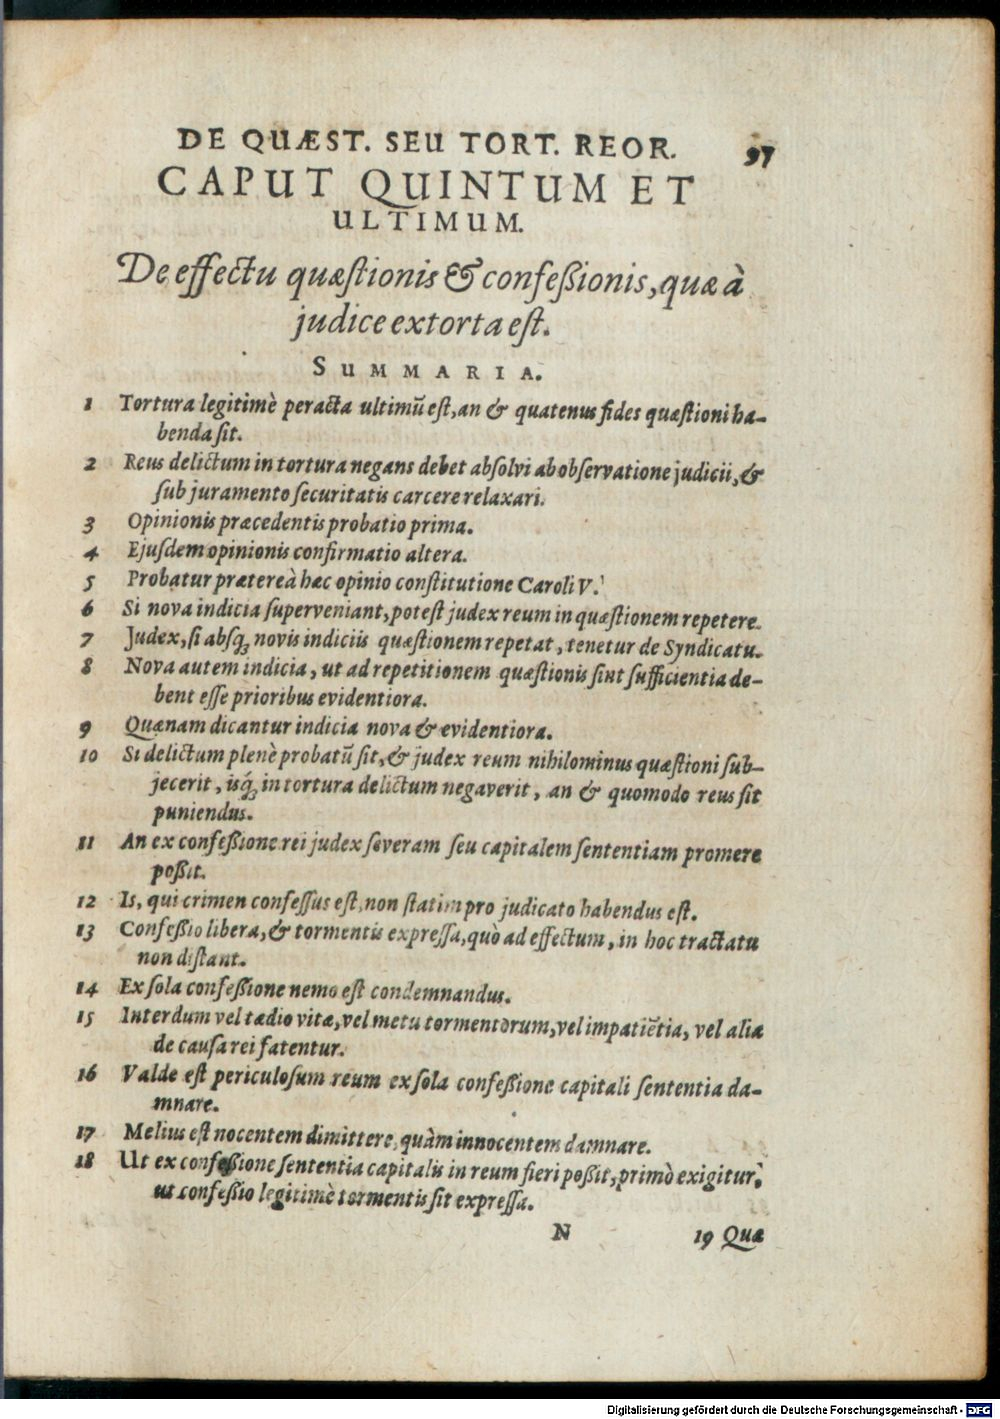 DE QUÆST. SEU TORT. REOR. 97
CAPUT QUINTUM ET
ULTIMUM.
De effectu quæſtionis & confeßionis, quæ à
judice extorta eſt.
SUMMARIA.
1 Tortura legitimè peracta ultimũ eſt, an & quatenus fides quæſtioni ha-
benda ſit.
2 Reus delictum in tortura negans debet abſolvi ab obſervatione judicii, &
ſub juramento ſecuritatis carcere relaxari.
3 Opinionis præcedentis probatio prima.
4 Ejuſdem opinionis confirmatio altera.
5 Probatur prætereà hæc opinio conſtitutione Caroli V.
6 Si nova indicia ſuperveniant, poteſt judex reum in quæſtionem repetere.
7 Judex, ſi abſqꝫ novis indiciis quæſtionem repetat, tenetur de Syndicatu.
8 Nova autem indicia, ut ad repetitionem quæſtionis ſint ſufficientia de-
bent eſſe prioribus evidentiora.
9 Quænam dicantur indicia nova & evidentiora.
10 Si delictum plenè probatũ ſit, & judex reum nihilominus quæſtioni ſub-
jecerit, isq́ꝫ in tortura delictum negaverit, an & quomodo reus ſit
puniendus.
11 An ex confeßione rei judex ſeveram ſeu capitalem ſententiam promere
poßit.
12 Is, qui crimen confeſſus eſt, non ſtatim pro judicato habendus eſt.
13 Confeßio libera, & tormentis expreſſa, quò ad effectum, in hoc tractatu
non diſtant.
14 Ex ſola confeßione nemo eſt condemnandus.
15 Interdum vel tædio vitæ, vel metu tormentorum, vel impatiẽtia, vel alia
de cauſa rei fatentur.
16 Valde eſt periculoſum reum ex ſola confeßione capitali ſententia da-
mnare.
17 Melius eſt nocentem dimittere, quàm innocentem damnare.
18 Ut ex confeßione ſententia capitalis in reum fieri poßit, primò exigitur,
ut confeßio legitimè tormentis ſit expreſſa.
N 19 Quæ
Digitalisierung gefördert durch die Deutsche Forschungsgemeinschaft - DFG